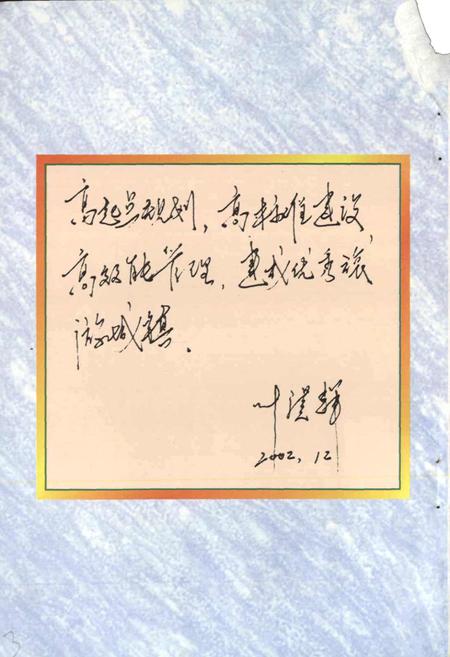 高起点规划，高标准建设，
高效能管理，建成优秀旅
游城镇.
叶
2002.12
3